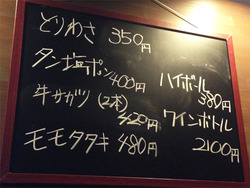 とりわさ 350円
タン塩ポン 400円
牛サガリ(2本) 420円
モモタタキ 480円
ハイボール 380円
ワインボトル 2100円